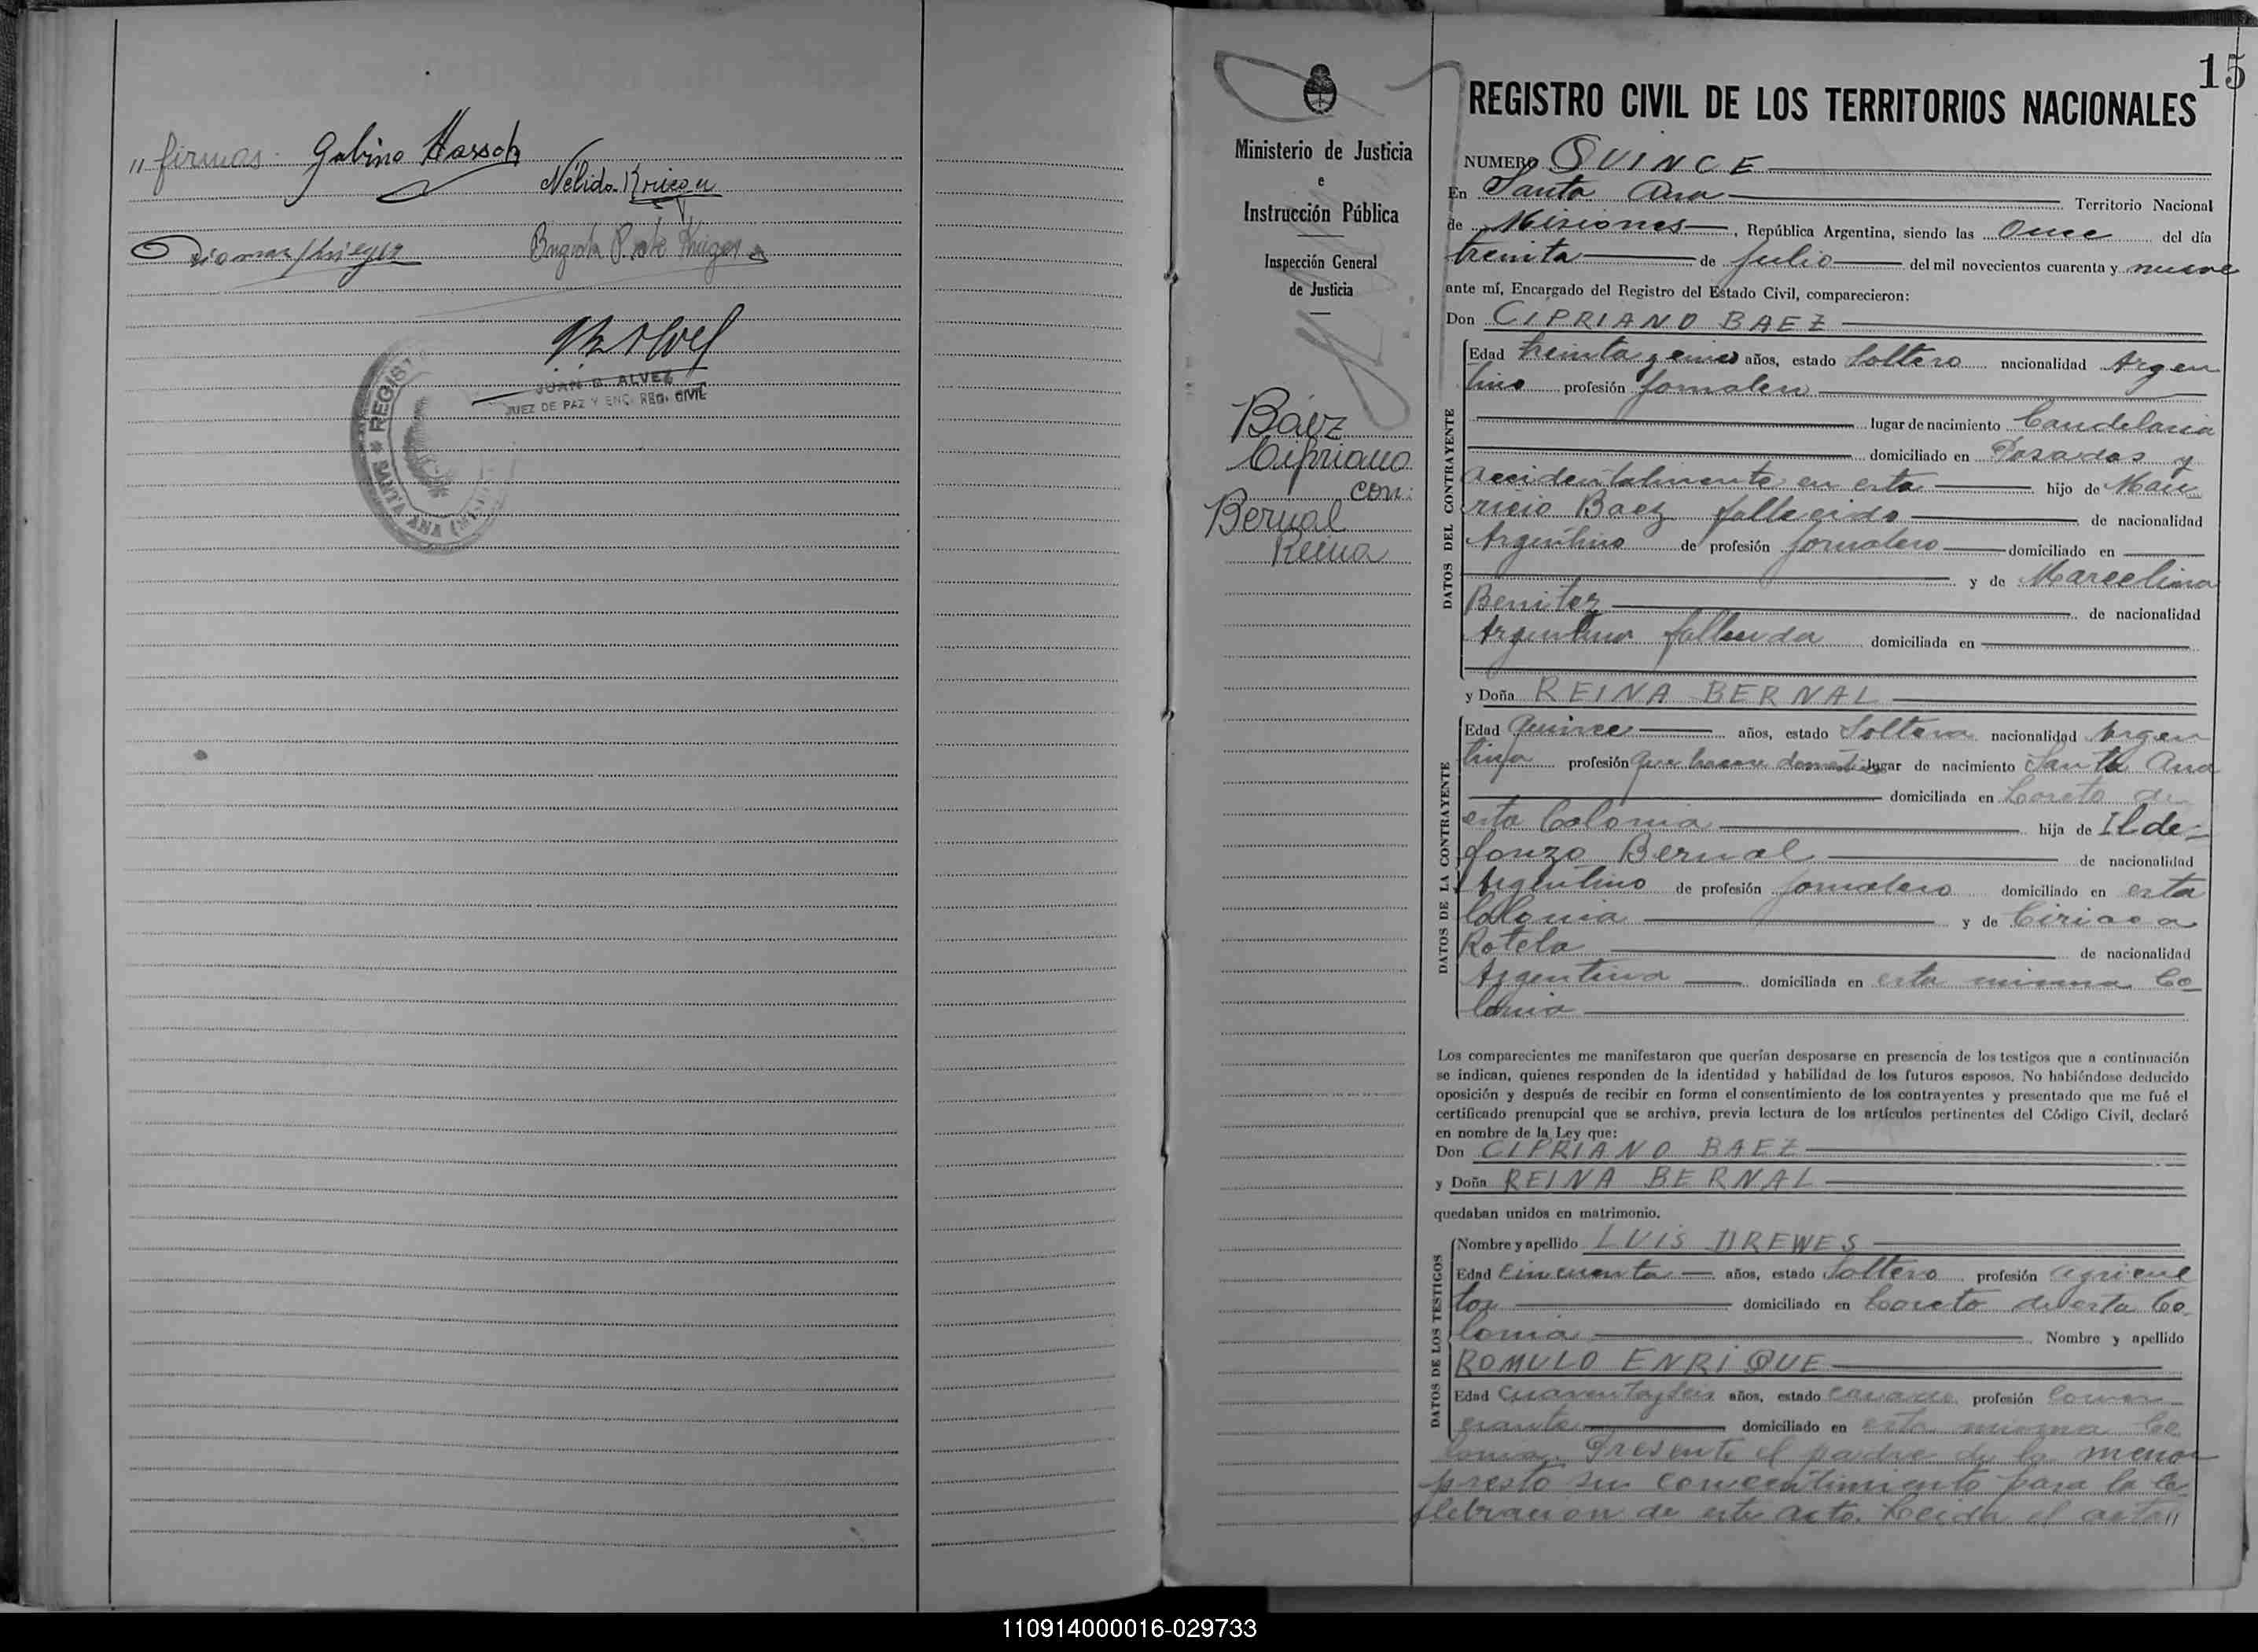 " firmas. Gabino Hassch
Nélida Krieger
JUAN B. ALVEZ
JUEZ DE PAZ Y ENC. REG. CIVIL
REGIST
SANTA ANA
15
REGISTRO CIVIL DE LOS TERRITORIOS NACIONALES
Ministerio de Justicia
e
Instrucción Pública
Inspección General
de Justicia
Báez
Cipriano
con:
Bernal
Reina
NUMERO QUINCE
En Santa Ana Territorio Nacional
de Misiones, República Argentina, siendo las Once del día
treinta de Julio del mil novecientos cuarenta y nueve
ante mí, Encargado del Registro del Estado Civil, comparecieron:
Don CIPRIANO BAEZ
DATOS DEL CONTRAYENTE
Edad treinta y años, estado Soltero nacionalidad Argen
tino profesión Jornalero
lugar de nacimiento Candelaria
domiciliado en Posadas y
accidentalmente en esta hijo de Mau
ricio Baez fallecido de nacionalidad
Argentino de profesión Jornalero domiciliado en
y de Marcelina
Benitez de nacionalidad
Argentina fallecida domiciliada en
y Doña REINA BERNAL
DATOS DE LA CONTRAYENTE
Edad Quince años, estado Soltera nacionalidad Argen
tina profesión Que haceres domésticos lugar de nacimiento Santa Ana
domiciliada en Loreto de
esta Colonia hija de Ilde-
fonzo Bernal de nacionalidad
Argentino de profesión Jornalero domiciliado en esta
Colonia y de Ciriaca
Rotela de nacionalidad
Argentina domiciliada en esta misma Co
lonia
Los comparecientes me manifestaron que querían desposarse en presencia de los testigos que a continuación
se indican, quienes responden de la identidad y habilidad de los futuros esposos. No habiéndose deducido
oposición y después de recibir en forma el consentimiento de los contrayentes y presentado que me fué el
certificado prenupcial que se archiva, previa lectura de los artículos pertinentes del Código Civil, declaré
en nombre de la Ley que:
Don CIPRIANO BAEZ
y Doña REINA BERNAL
quedaban unidos en matrimonio.
DATOS DE LOS TESTIGOS
Nombre y apellido LUIS DREWES
Edad Cincuenta años, estado Soltero profesión agricul
tor domiciliado en Loreto de esta Co
lonia Nombre y apellido
ROMULO ENRIQUE
Edad Cuarenta y seis años, estado casado profesión Comer
ciante domiciliado en esta misma Co
lonia. Presente el padre de la menor
presto su concentimiento para la ce
lebracion de este acto. Leida el acta "
110914000016-029733